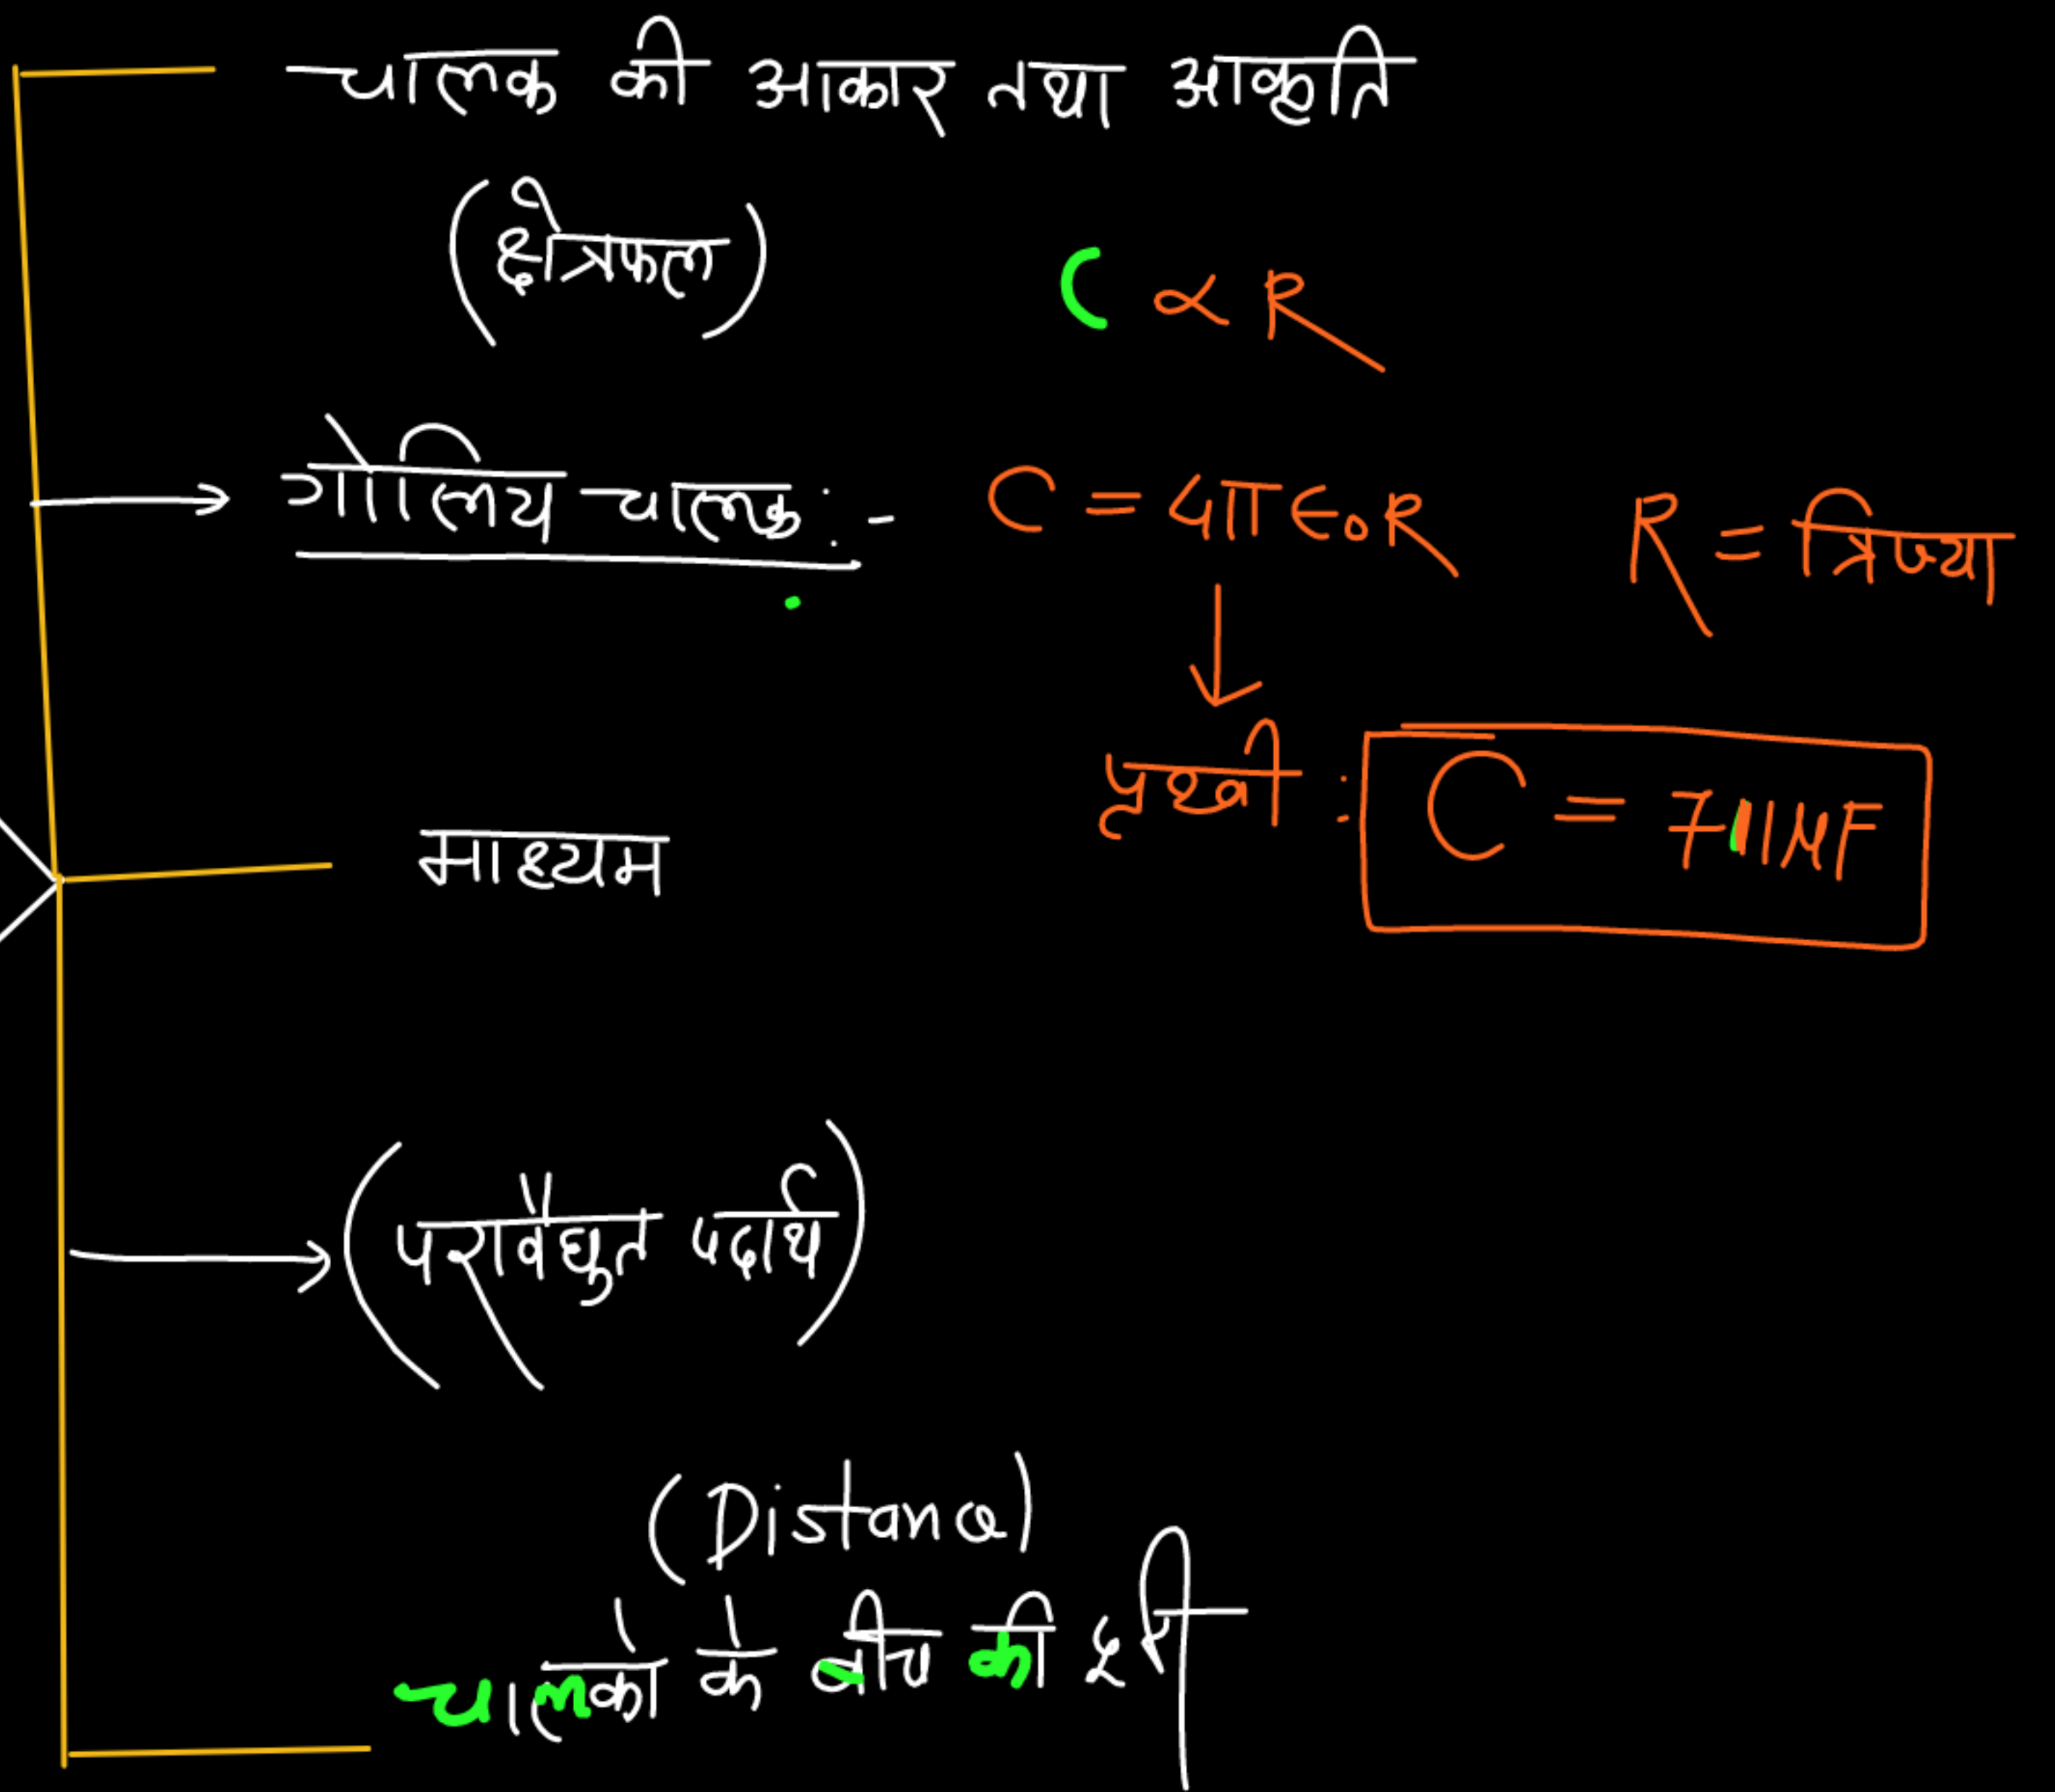 चालक की आकार तथा आकृति
(क्षेत्रफल)
C ∝ R
गोलिय चालक :- C = 4πϵ₀R R = त्रिज्या
पृथ्वी : C = 711μF
माध्यम
(परावैद्युत पदार्थ)
(Distance)
चालको के बीच की दूरी